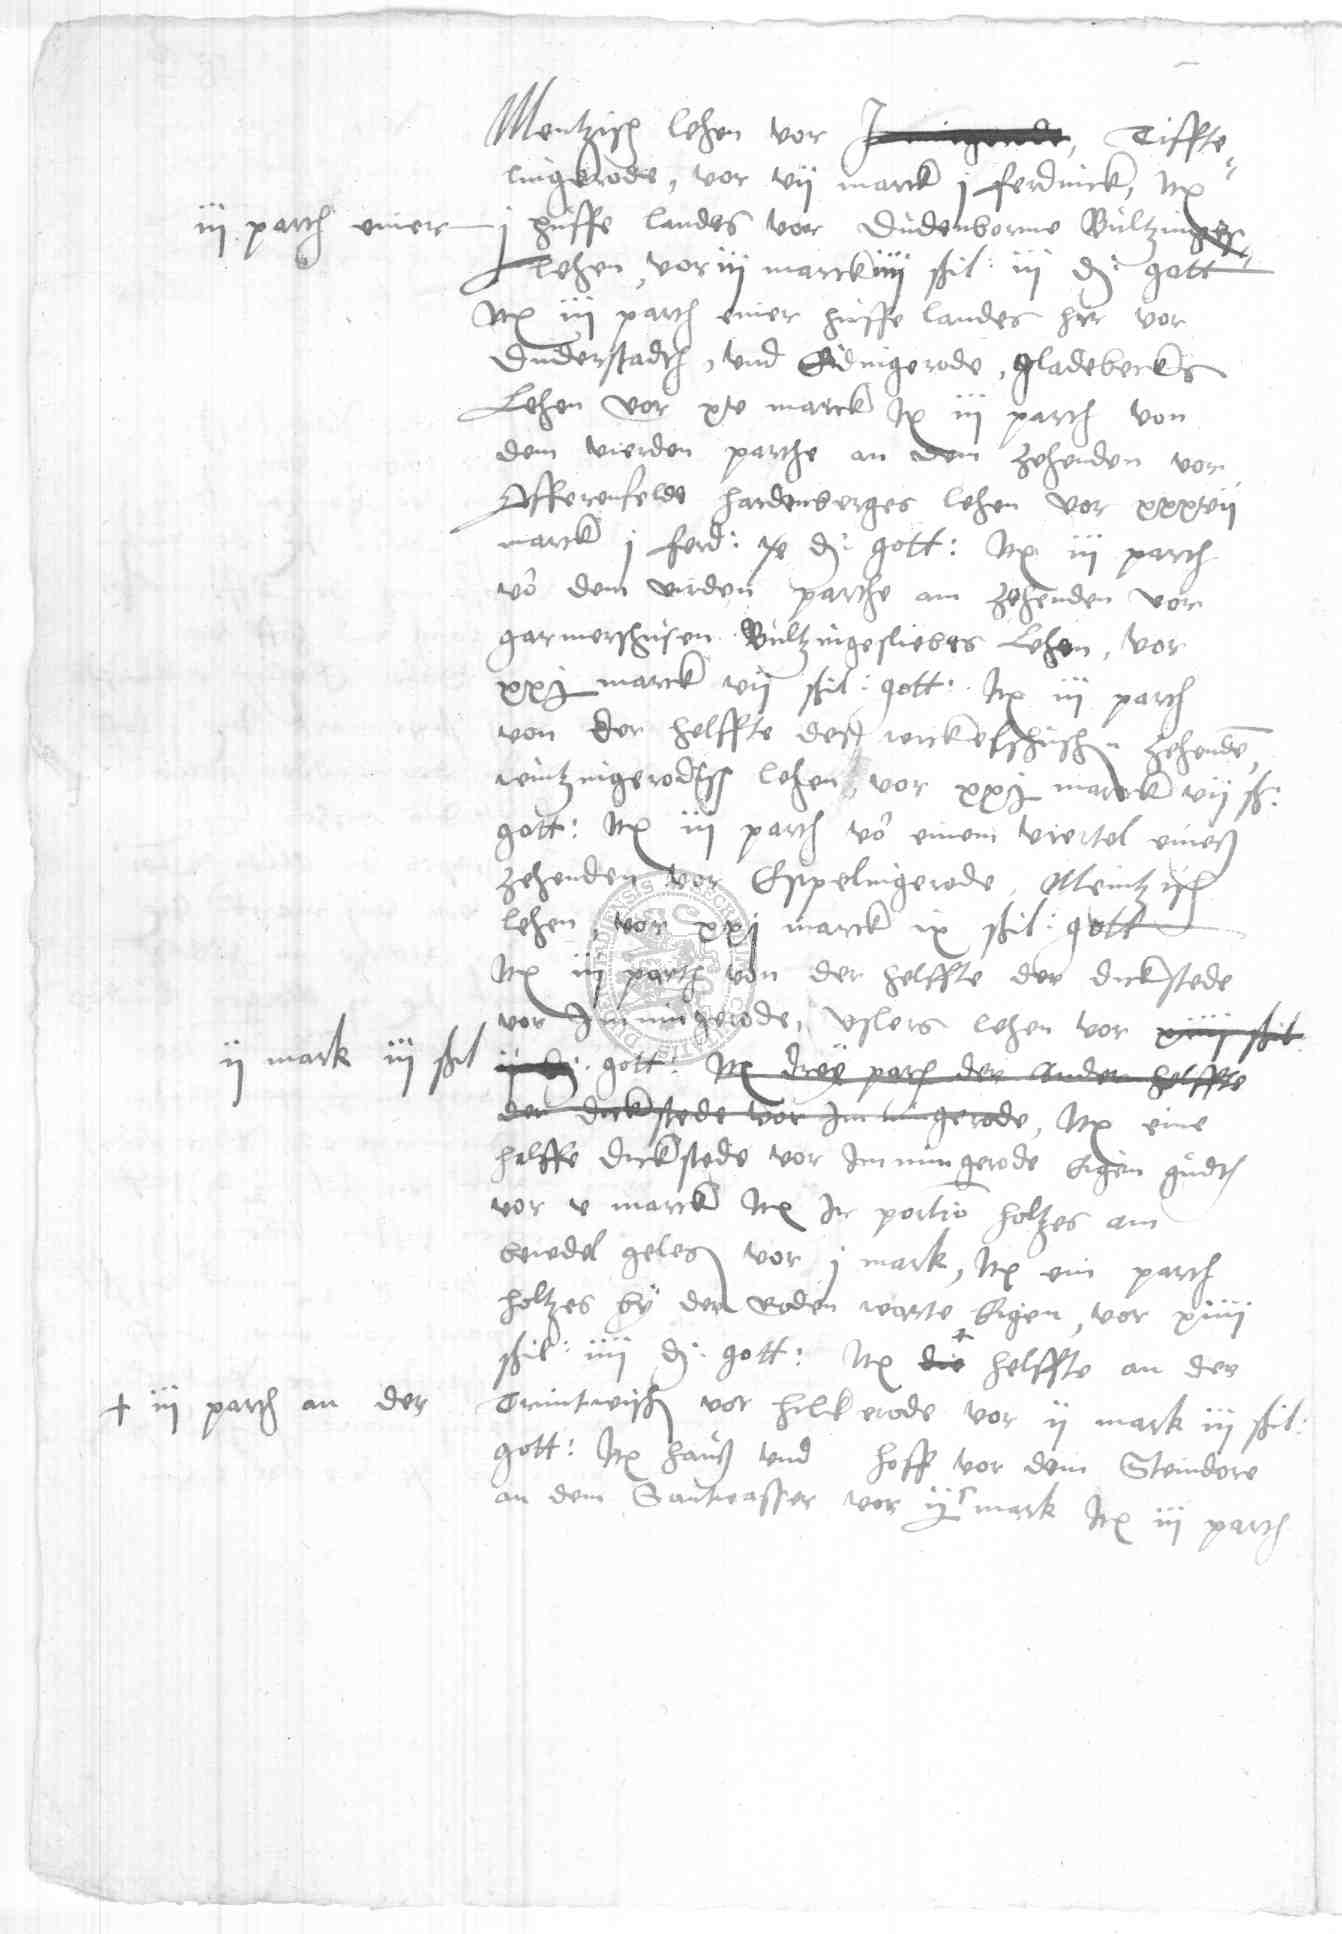 Mentzisch lehen vor Immigerode, Tiffte
lingkrode, vor vij marck j ferdinck, Itẽ
iij parth einer j huffe landes vor Dudenborne Bultzinges
lehen, vor iij marck iiij schil: iij d: gott
Itẽ iij parth einer huffe landes her vor
Duderstadth, vnd Edingerode, gladebecks
Lehen vor xv marck Itẽ iij parth von
dem vierden parthe an dem zehenden vor
Esserenfelde hardenberges lehen vor xxxvij
marck j ferd: d: gott: Itẽ iij parth
vō dem virden parthe am zehenden vor
garmershusen Bultzingeslebes Lehen, vor
xxj marck vij schil: gott: Itẽ iij parth
von der helffte deß werckelshusch zehendē,
wintzingerodeß lehen, vor xxj marck vij sch:
gott: Itẽ iij parth vō einem viertel eineß
zehenden vor Espelingerode, Meintzisch
lehen, vor xxj marck ix schil: gott
Itẽ iij parth von der helffte der dickstede
vor Immingerode, vslers lehen vor xiiij schil
ij mark iij schil ij d: gott: Itẽ drey parth der ander helffte
der dickstede vor Immingerode, Itẽ eine
halffe dickstede vor Immingerode eigen gudth
vor v marck Itẽ Ir portiō holtzes am
geles vor j mark, Itẽ ein parth
holtzes by der roden warte Eigen, vor xiiij
schil: iiij d: gott: Itẽ die + helffte an der
+ iij parth an der Trintwisch vor hilkerode vor ij mark iij schil:
gott: Itẽ hauß vnd hoff vor dem Steindore
an dem Santwasser vor ij mark Itẽ iij parth